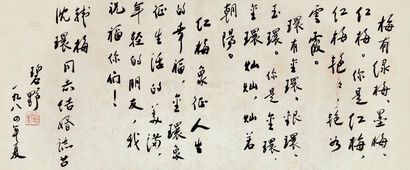 梅有绿梅、墨梅、
红梅。你是红梅，
红梅艳艳，艳如
云霞。
环有金环、银环、
玉环。你是金环，
金环灿灿，灿若
朝阳。
红梅象征人生
的幸福，金环象
征生活的美满，
年轻的朋友，我
祝福你们！
韩梅
沈环同志结婚志喜
碧野
一九八〇年夏